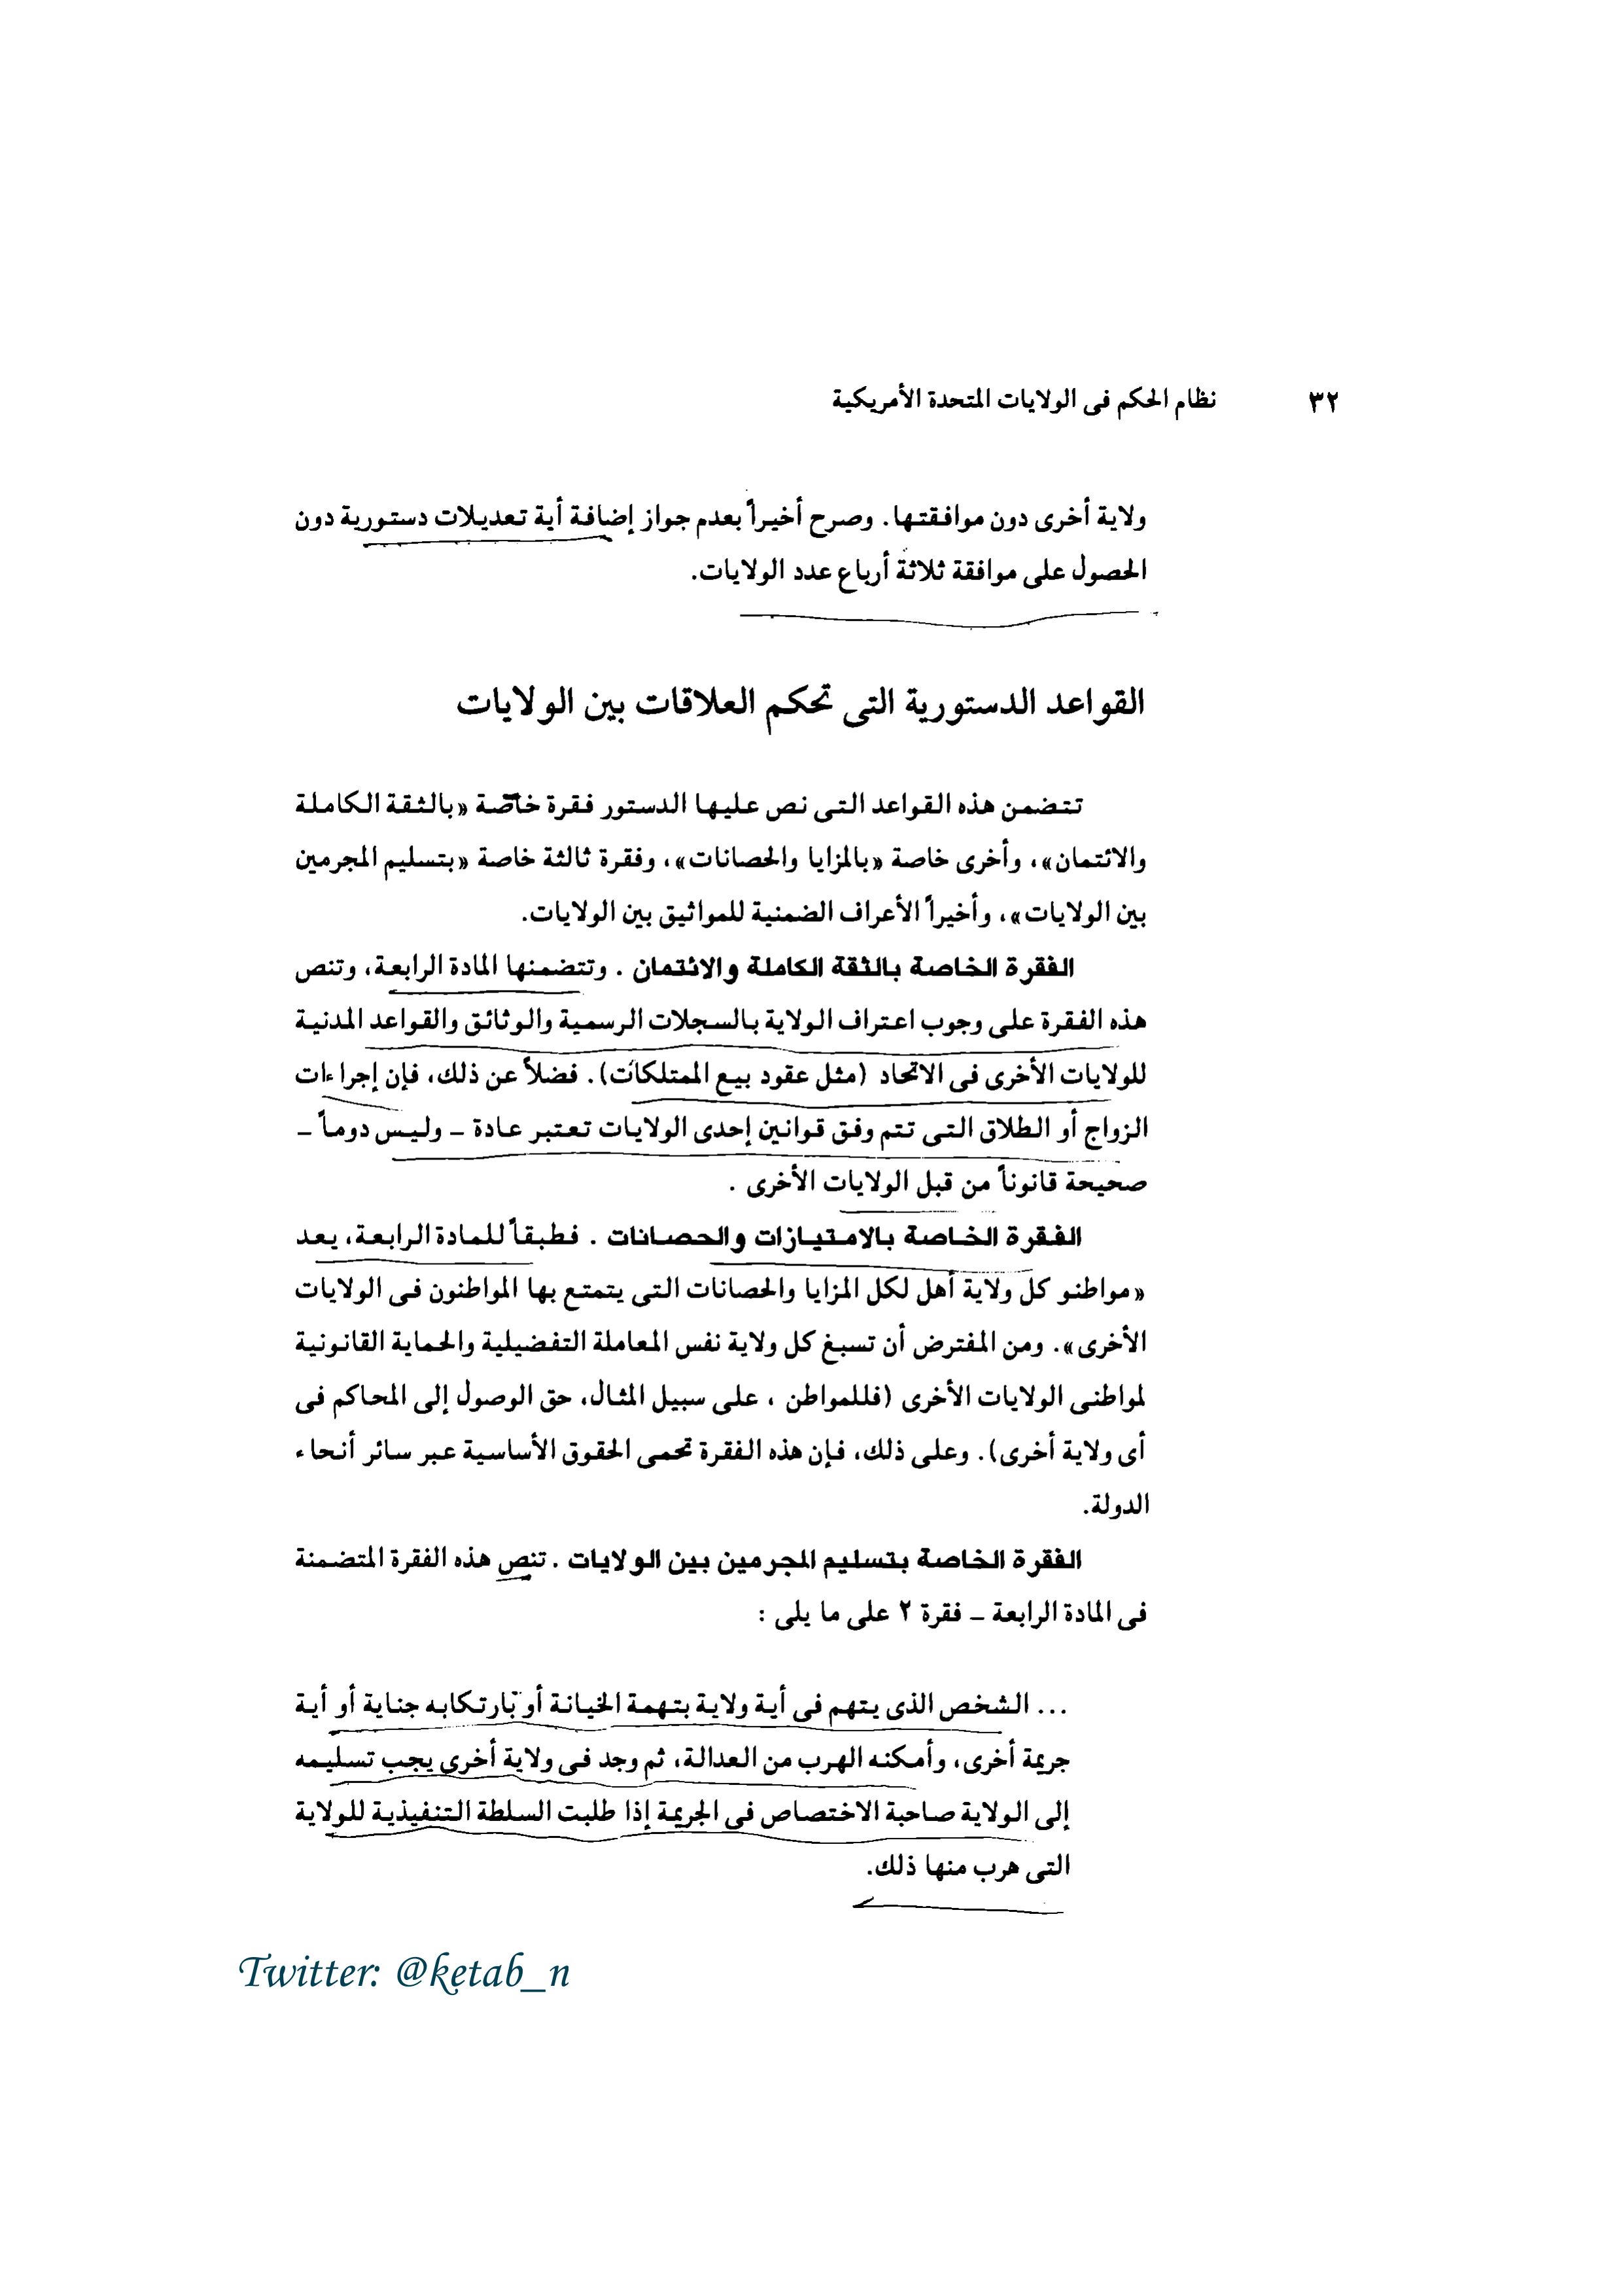 ٣٢ نظام الحكم فى الولايات المتحدة الأمريكية
ولاية أخرى دون موافقتها. وصرح أخيراً بعدم جواز إضافة أية تعديلات دستورية دون
الحصول على موافقة ثلاثة أرباع عدد الولايات.
القواعد الدستورية التى تحكم العلاقات بين الولايات
تتضمن هذه القواعد التى نص عليها الدستور فقرة خاصة «بالثقة الكاملة
والائتمان»، وأخرى خاصة «بالمزايا والحصانات»، وفقرة ثالثة خاصة «بتسليم المجرمين
بين الولايات»، وأخيراً الأعراف الضمنية للمواثيق بين الولايات.
الفقرة الخاصة بالثقة الكاملة والائتمان . وتتضمنها المادة الرابعة، وتنص
هذه الفقرة على وجوب اعتراف الولاية بالسجلات الرسمية والوثائق والقواعد المدنية
للولايات الأخرى فى الاتحاد (مثل عقود بيع الممتلكات). فضلاً عن ذلك، فإن إجراءات
الزواج أو الطلاق التى تتم وفق قوانين إحدى الولايات تعتبر عادة – وليس دوماً –
صحيحة قانوناً من قبل الولايات الأخرى .
الفقرة الخاصة بالامتيازات والحصانات . فطبقاً للمادة الرابعة، يعد
«مواطنو كل ولاية أهل لكل المزايا والحصانات التى يتمتع بها المواطنون فى الولايات
الأخرى». ومن المفترض أن تسبغ كل ولاية نفس المعاملة التفضيلية والحماية القانونية
لمواطنى الولايات الأخرى (فللمواطن ، على سبيل المثال، حق الوصول إلى المحاكم فى
أى ولاية أخرى). وعلى ذلك، فإن هذه الفقرة تحمى الحقوق الأساسية عبر سائر أنحاء
الدولة.
الفقرة الخاصة بتسليم المجرمين بين الولايات . تنص هذه الفقرة المتضمنة
فى المادة الرابعة – فقرة ٢ على ما يلى :
... الشخص الذى يتهم فى أية ولاية بتهمة الخيانة أو بارتكابه جناية أو أية
جريمة أخرى، وأمكنه الهرب من العدالة، ثم وجد فى ولاية أخرى يجب تسليمه
إلى الولاية صاحبة الاختصاص فى الجريمة إذا طلبت السلطة التنفيذية للولاية
التى هرب منها ذلك.
Twitter: @ketab_n